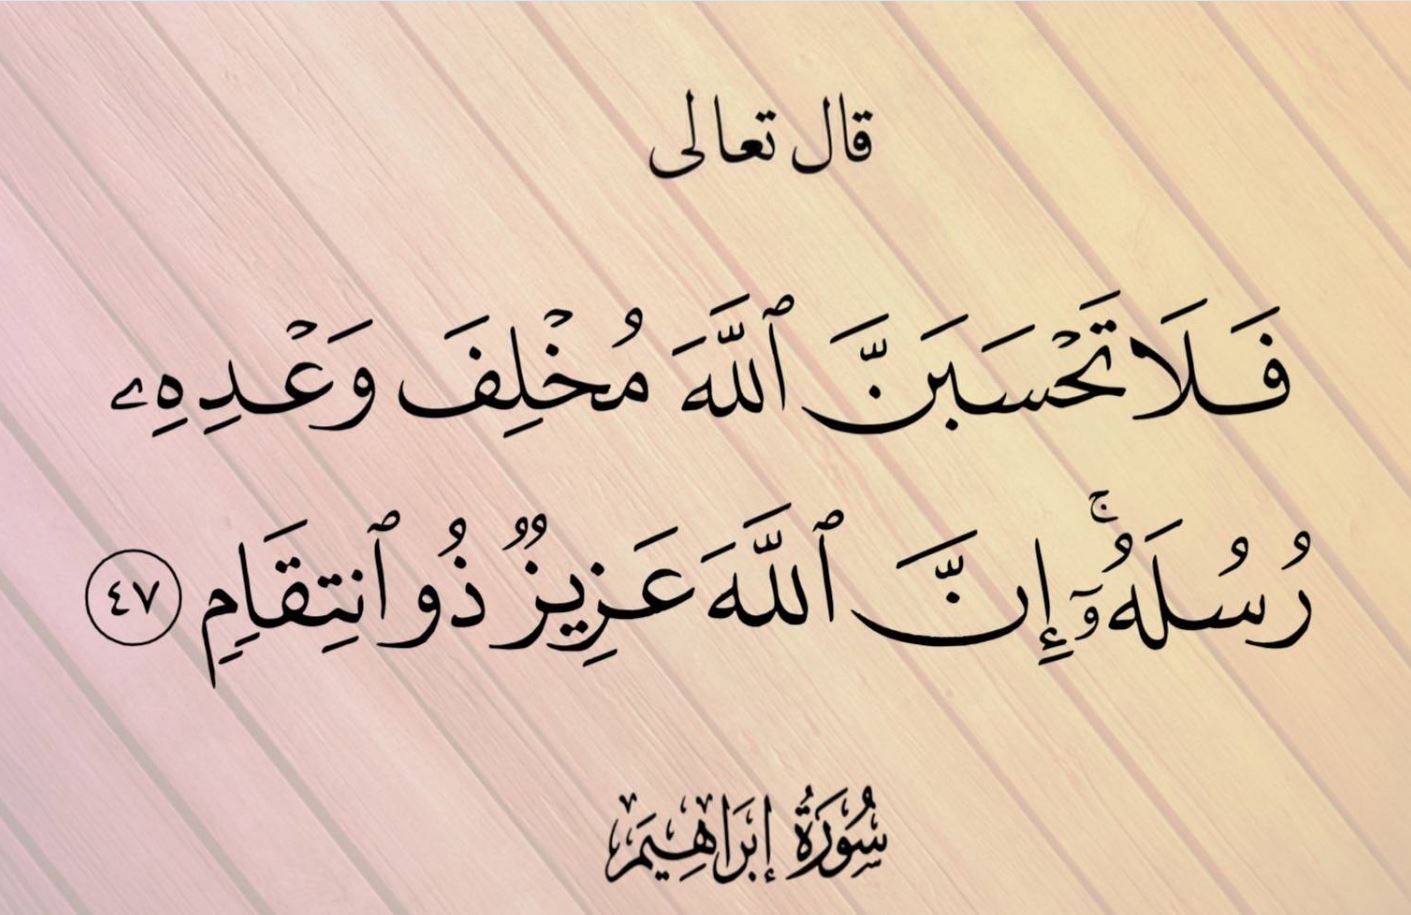 قال تعالى
فَلَا تَحْسَبَنَّ ٱللَّهَ مُخْلِفَ وَعْدِهِۦ
رُسُلَهُۥٓۚ إِنَّ ٱللَّهَ عَزِيزٌ ذُو ٱنتِقَامٍ ٤٧
سُورَةُ إِبْرَاهِيمَ